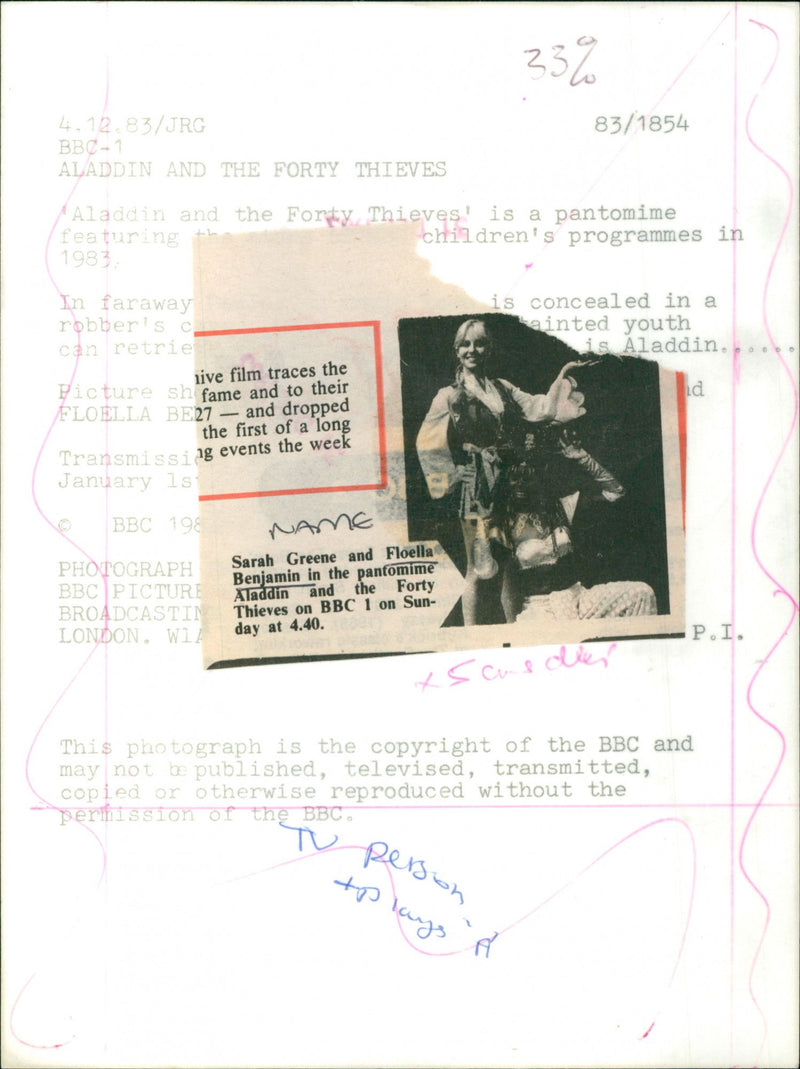 33%
4.12.83/JRG 83/1854
BBC-1
ALADDIN AND THE FORTY THIEVES
'Aladdin and the Forty Thieves' is a pantomime
featuring children's programmes in
1983.
In faraway is concealed in a
robber's tainted youth
can retrie is Aladdin......
Picture sh
FLOELLA BE
Transmissi
January 1s
© BBC 198
PHOTOGRAPH
BBC PICTURE
BROADCASTIN
LONDON. W1A P.I.
hive film traces the
fame and to their
27 — and dropped
the first of a long
ng events the week
NAME
Sarah Greene and Floella
Benjamin in the pantomime
Aladdin and the Forty
Thieves on BBC 1 on Sun-
day at 4.40.
This photograph is the copyright of the BBC and
may not be published, televised, transmitted,
copied or otherwise reproduced without the
permission of the BBC.
TV Person
+ plays 'A'